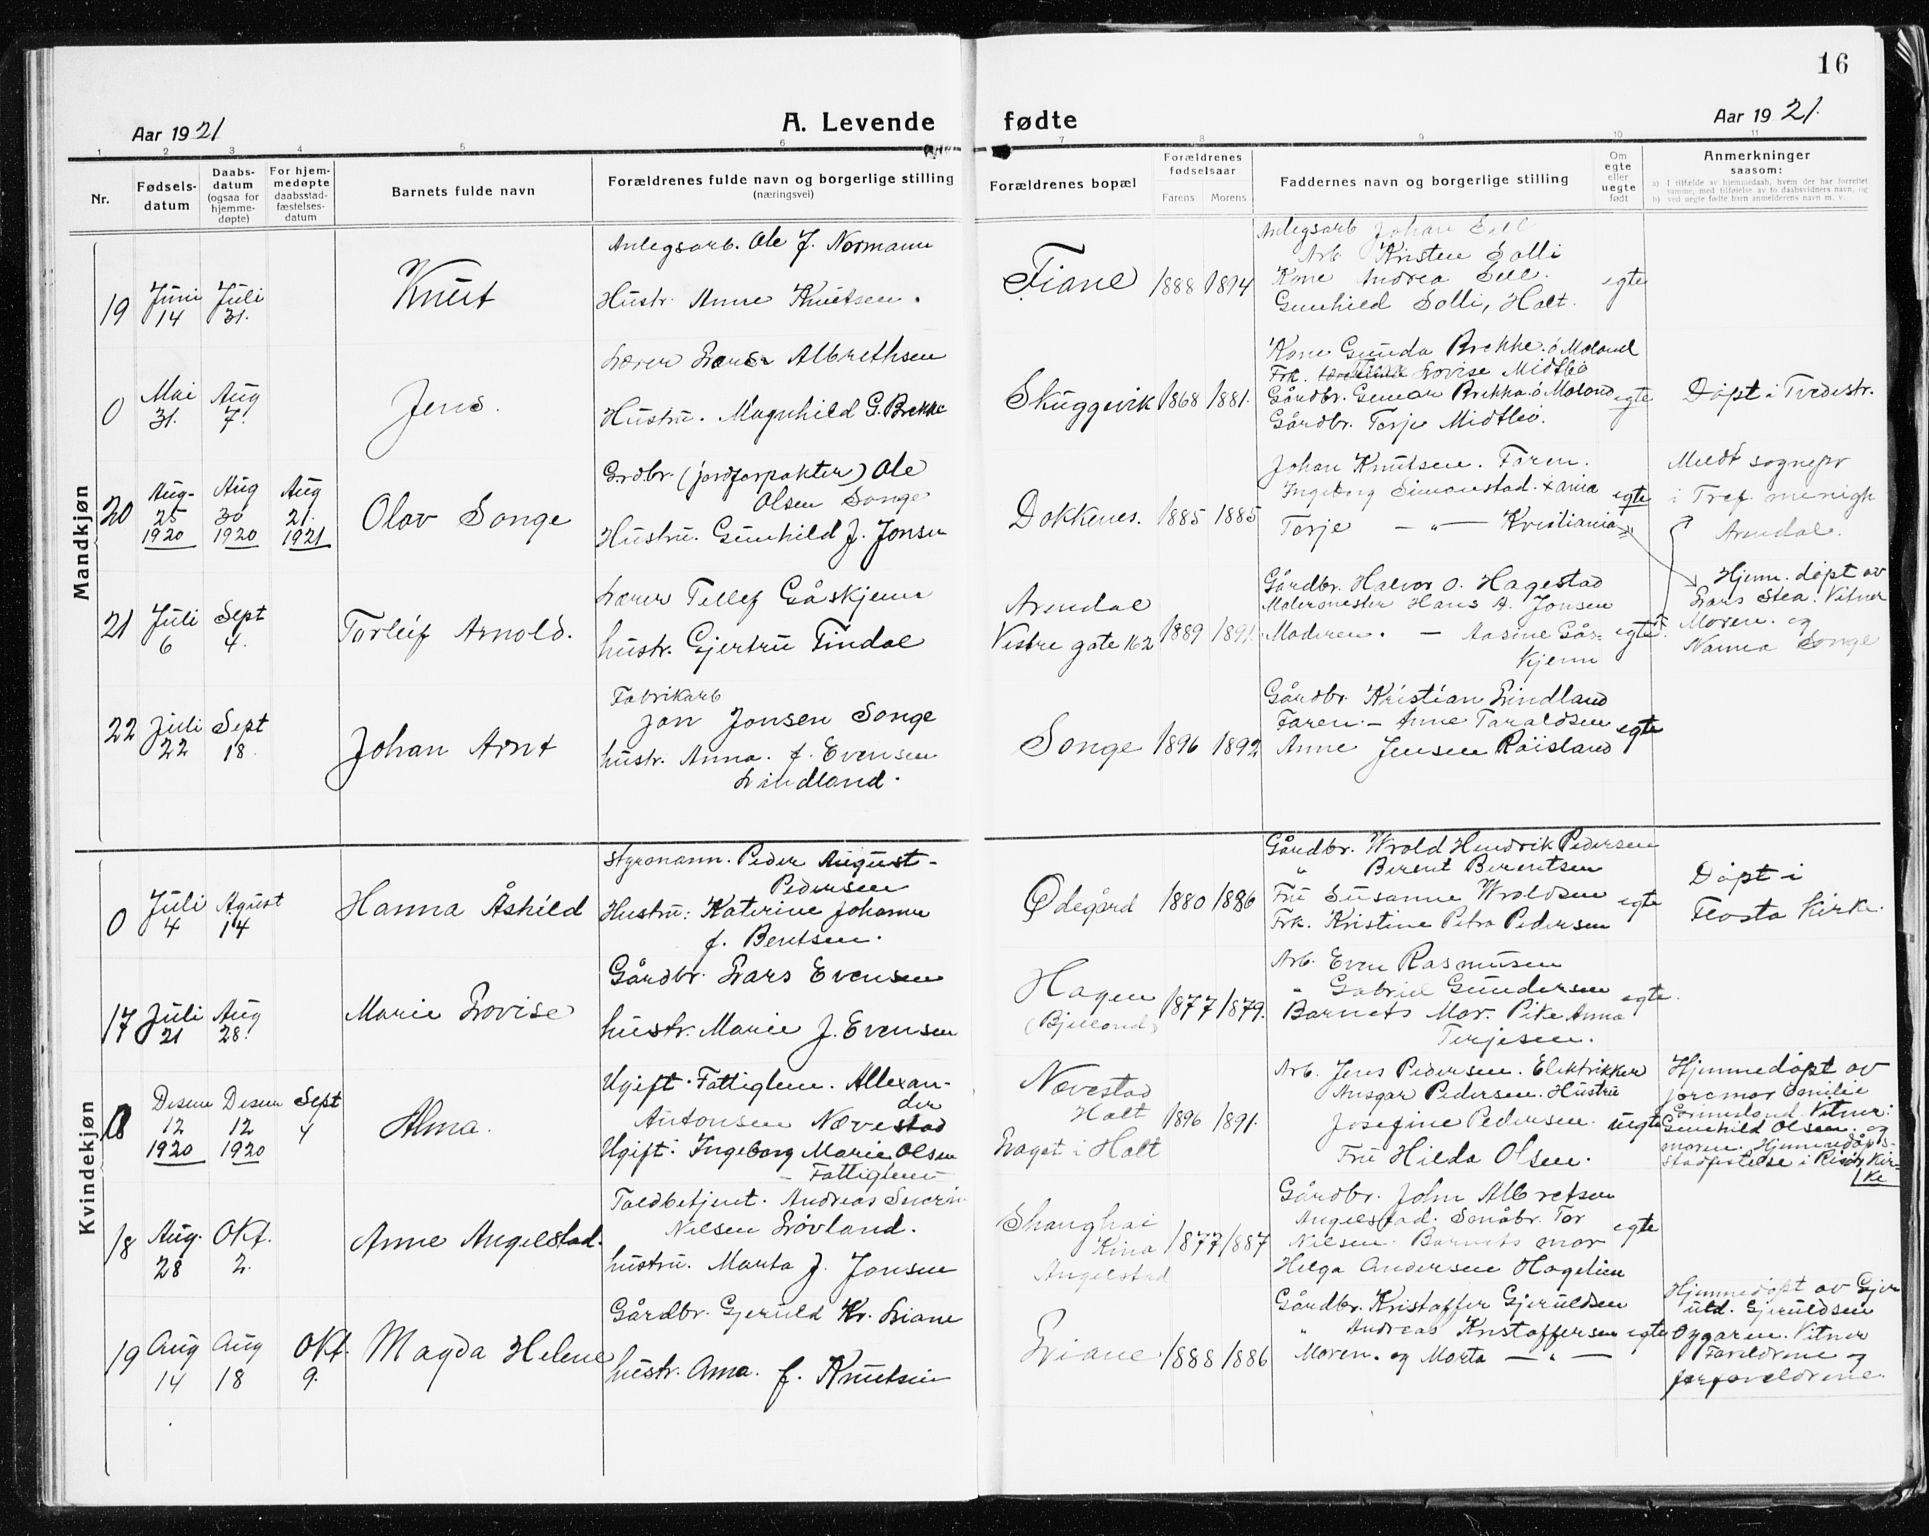 16
Aar 1921
A. Levende fødte
Aar 1921.
1 2 3 4 5 6 7 8 9 10 11
Nr.
Fødsels-
datum
Daabs-
datum
(ogsaa for
hjemme-
døpte)
For hjem-
medøpte
daabsstad-
fæstelses-
datum
Barnets fulde navn
Forældrenes fulde navn og borgerlige stilling
(næringsvei)
Forældrenes bopæl
Forældrenes
fødselsaar
Farens Morens
Faddernes navn og borgerlige stilling
Om
egte
eller
uegte
født
Anmerkninger
saasom:
a) I tilfælde av hjemmedaab, hvem der har forrettet
samme, med tilføielse av to daabsvidners navn, og
b) ved uegte fødte barn anmelderens navn m. v.
Mandkjøn
19
Juni
14
Juli
31.
Knut
Anlegsarb. Ole J. Normann
Hustr. Anne Knutsen.
Fiane
1888 1894
Anlegsarb Johan
Arb. Kristen Solli
Kone Andrea
Gunhild Solli, Holt.
egte
0
Mai
31.
Aug
7.
Jens.
Lærer Lars Albrethsen
Hustru. Magnhild G. Brekke
Skuggevik
1868 1881.
Kone Gunda Brekke. ö Moland
Frk. Lovise Midtbö
Gårdbr. Gunnar Brekka. ö Moland
Gårdbr. Torje Midtbö.
egte
Döpt i Tvedestr.
20
Aug.
25
1920
Aug
30
1920
Aug
21.
1921
Olav Songe
Grdbr. (jordforpakter) Ole
Olsen Songe
Hustru. Gunhild J. Jonsen
Dokkenes.
1885 1885
Johan Knutsen. Faren.
Ingeborg Simonstad. Xania
Torje — " — Kristiania
egte
Meldt sognepr
i Tref. menigh
Arendal.
21
Juli
6
Sept
4.
Torleif Arnold.
Lærer Tellef Gåskjenn
hustr. Gjertru Tindal
Arendal
Vestre gate 162
1889 1891.
Gårdbr. Halvor O. Hagestad
Malermester Hans A. Jonsen
Moderen. — Aasine Gås-
kjenn
egte
Hjem. döpt av
Lars Stea. Vitner
Moren. og
Nanna Songe
22
Juli
22
Sept
18.
Johan Arnt
Fabrikarb
Jon Jonsen Songe
hustr. Anna. f. Evensen
Lindland.
Songe
1896 1892
Gårdbr. Kristian Lindland
Faren. — Anne Taraldsen
Anne Jensen Röisland
egte
Kvindekjøn
0
Juli
4
Agust
14
Hanna Åshild
Styrmann. Peder August-
Pedersen
Hustru: Katerine Johanne
f. Bentsen.
Ödegård
1880 1886
Gårdbr. Wrold Hendrik Pedersen
" Berent Berentsen
Fru Susanne Wroldsen
Frk. Kristine Petra Pedersen
egte
Döpt i
Flosta Kirke.
17
Juli
21
Aug
28.
Marie Lovise
Gårdbr. Lars Evensen
hustr. Marie J. Evensen
Hagen
(Bjelland)
1877 1879.
Arb. Even Rasmusen
" Gabriel Gundersen
Barnets Mor. Pike Anna
Terjesen.
egte.
0
Desem
12
1920
Desem
12
1920
Sept
4
Alma.
Ugift. Fattiglem. Allexan-
der
Antonsen Nævestad
Ugift: Ingeborg Marie Olsen
- Fattiglem
Nævestad
Holt
Laget i Holt
1896 1891.
Arb. Jens Pedersen. Elektrikker
Ansgar Pedersen. Hustru
Josefine Pedersen.
Fru Hilda Olsen.
uegte
Hjemmedöpt av
jormor Emilie
Grimesland. Vitner:
Gunhild Olsen. og
moren. Hjemmedåps-
stadfestelse i Risör Kir-
ke
18
Aug.
28
Okt.
2.
Anne Angelstad.
Toldbetjent. Andreas Severin
Nilsen Lövland.
hustru. Marta J. Jonsen
Shanghai
Kina
Angelstad
1877 1887
Gårdbr. John Albretsen
Angelstad. Småbr. Tor
Nielsen. Barnets mor
Helga Andersen Hagelien
egte
19
Aug
14
Aug
18
Okt.
9.
Magda Helene
Gårdbr. Gjeruld Kr. Liane
hustr. Anna. f. Knutsen
Liane
1888 1886
Gårdbr. Kristoffer Gjeruldsen
" Andreas Kristoffersen
Moren. og Marta — " —
egte
Hjemmedöpt av Gjer
uld. Gjeruldsen
Oggaren. Vitner
Foreldrene og
forforeldrene.